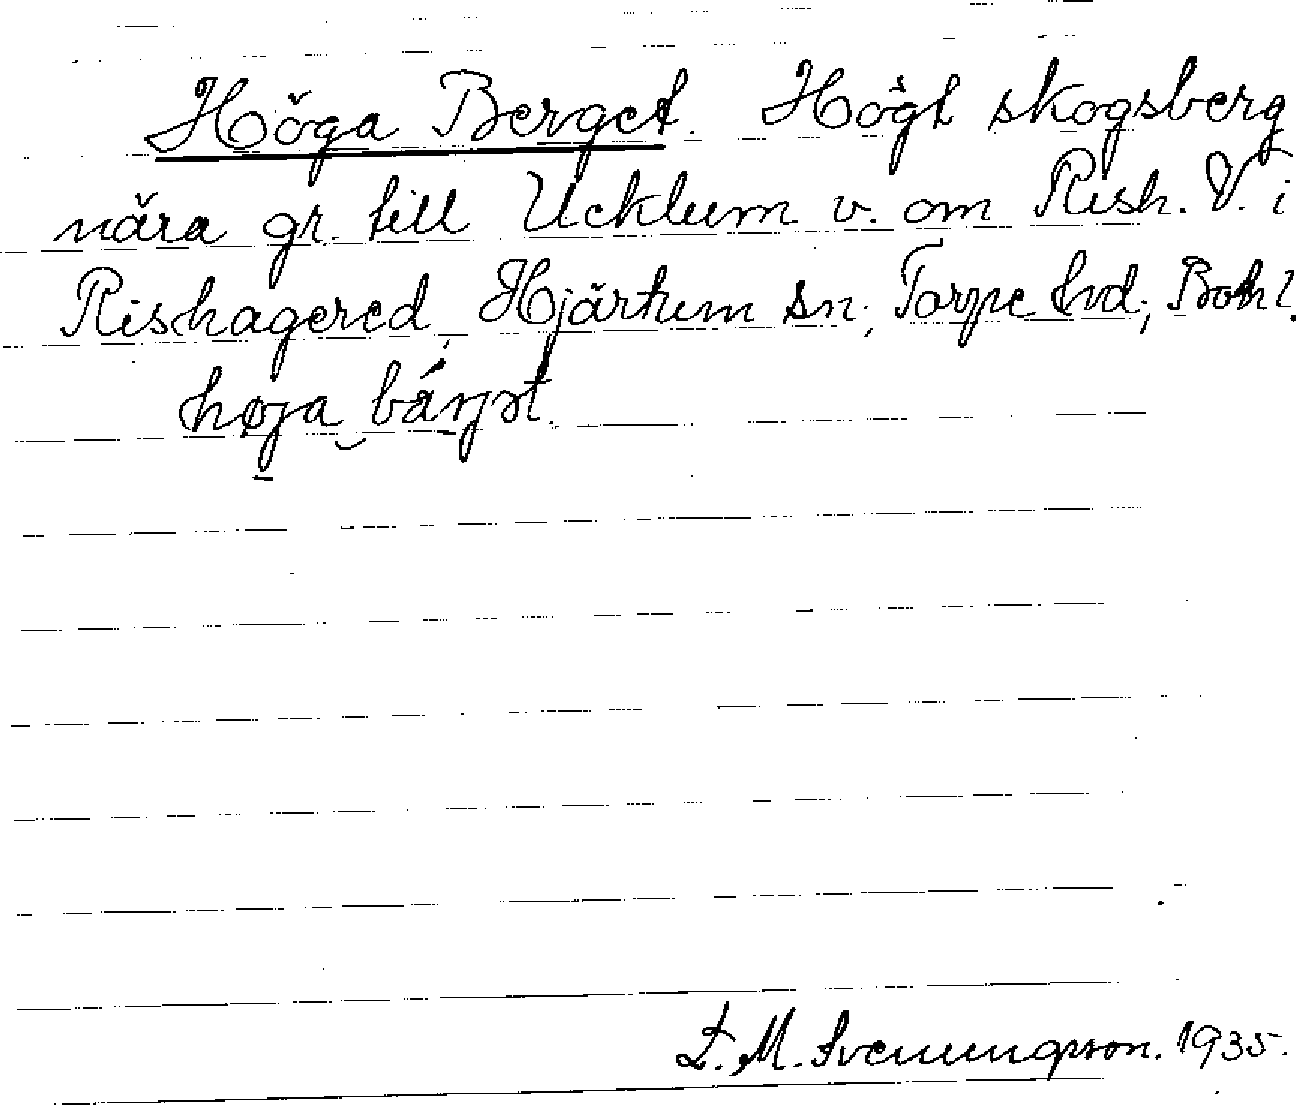 Höga Berget. Högt skogsberg
nära gr. till Ucklum v. om Rish. V. i
Rishagered, Hjärtum sn; Torpe hd; Bohl.
høja bárjət.
T. M. Svenungsson. 1935.